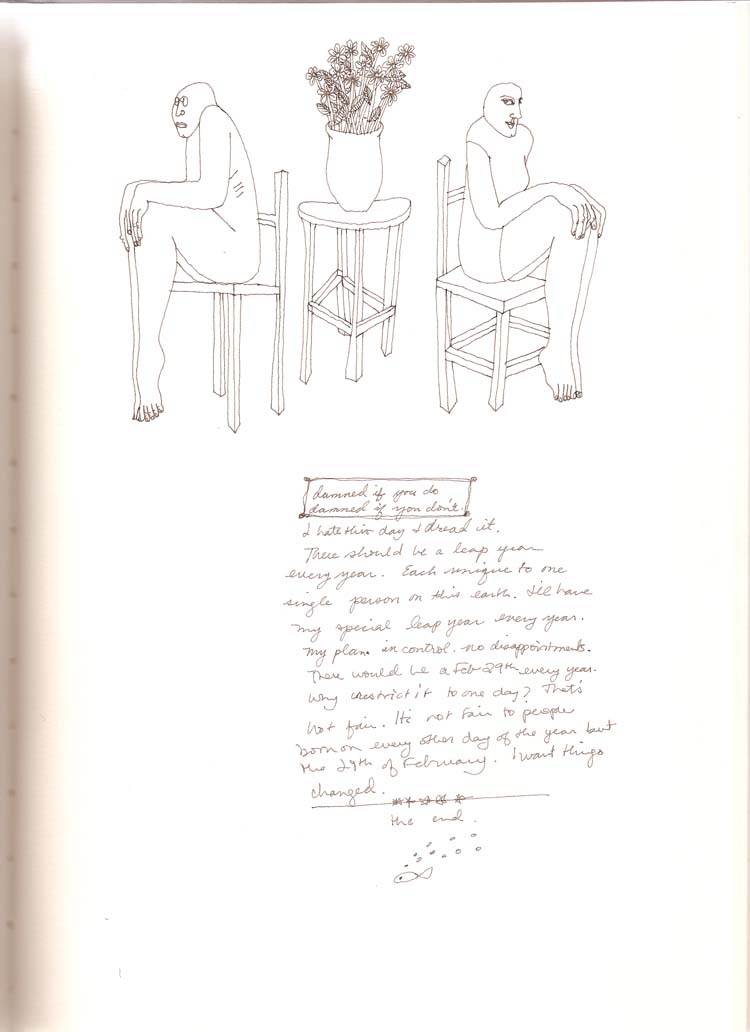 damned if you do
damned if you don't.
I hate this day I dread it.
There should be a leap year
every year. Each unique to one
single person on this earth. I'll have
my special leap year every year.
My plan. in control. no disappointments.
There would be a Feb 29th every year.
Why restrict it to one day? That's
not fair. It's not fair to people
born on every other day of the year but
the 29th of February. I want things
changed.
the end.